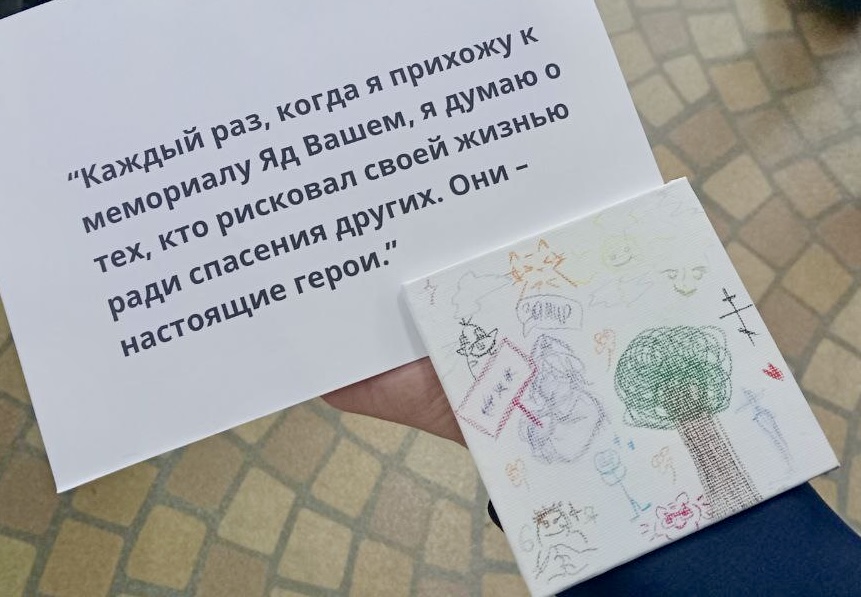 “Каждый раз, когда я прихожу к
мемориалу Яд Вашем, я думаю о
тех, кто рисковал своей жизнью
ради спасения других. Они –
настоящие герои.”